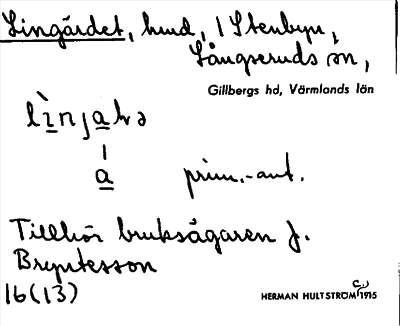 Lingärdet, hmd, 1 Stenbyn,
Långseruds sn,
Gillbergs hd, Värmlands län
lìnjaɫə
a
prim.-ant.
Tillhör bruksägaren J.
Bryntesson
16(13)
HERMAN HULTSTRÖM C:a 1915